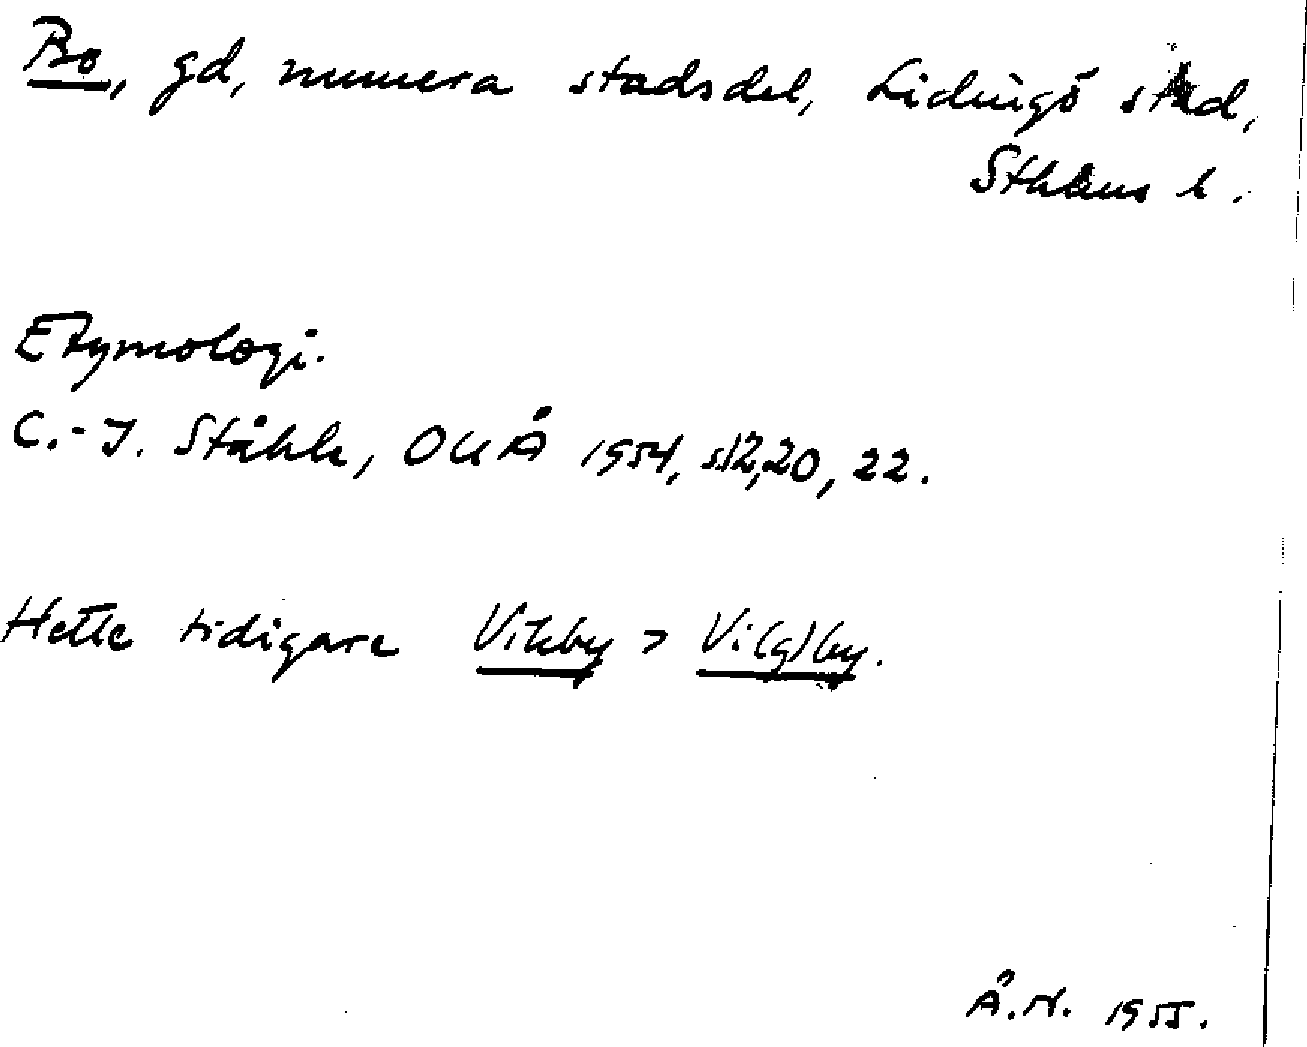 Bo, gd, numera stadsdel, Lidingö stad,
Sthlms l.
Etymologi.
C.-I. Ståhle, OUÅ 1954, s.12,20, 22.
Hette tidigare Vikby > Vi(g)by.
Å.N. 1955.